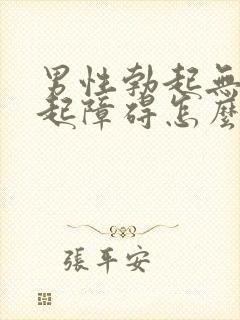 男性勃起無
起障碍怎麼
張平安